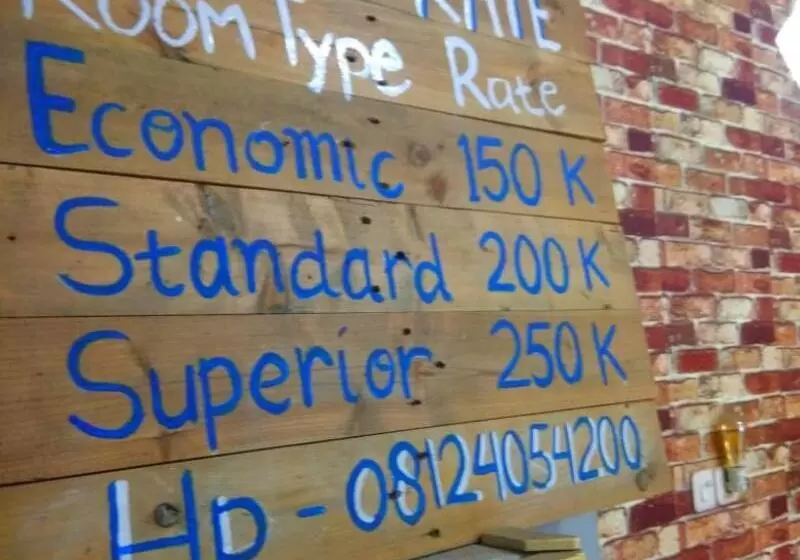 ROOM RATE
Type Rate
Economic 150 K
Standard 200 K
Superior 250 K
Hp - 08124054200